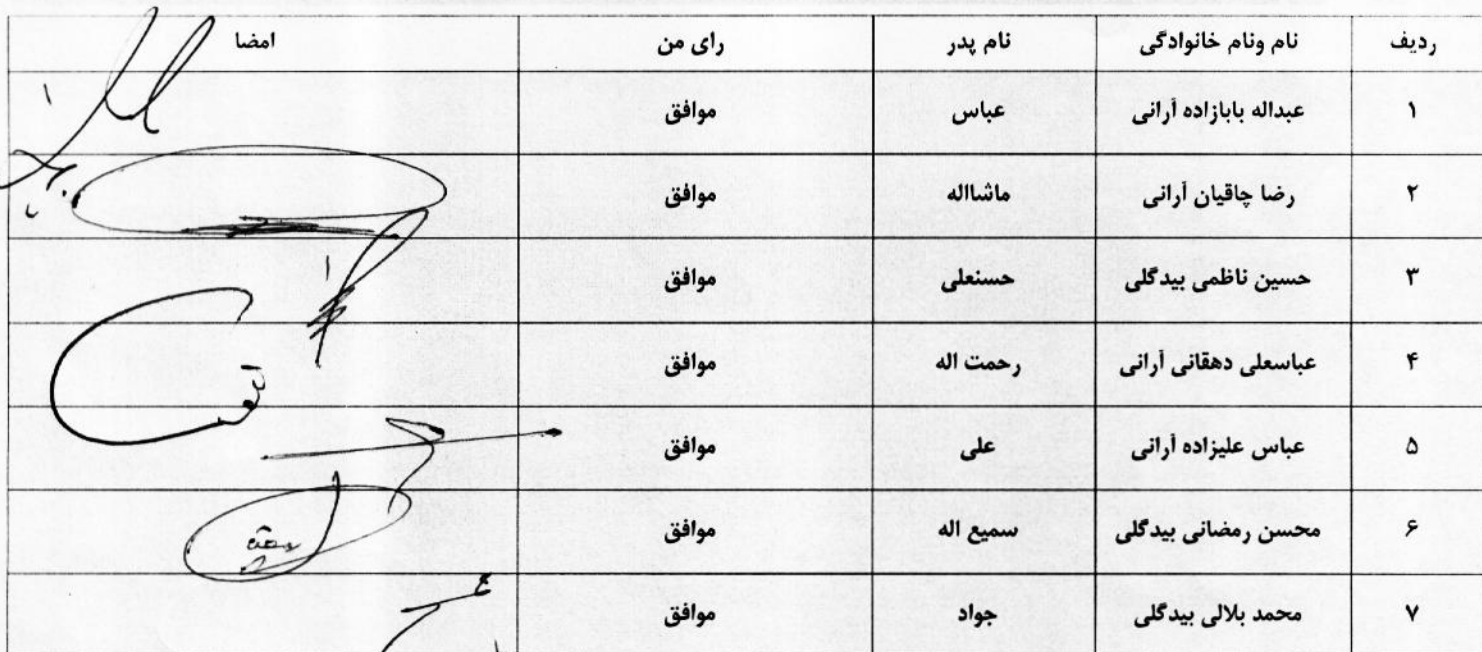 ردیف نام ونام خانوادگی نام پدر رای من امضا
۱ عبداله بابازاده آرانی عباس موافق
۲ رضا چاقیان آرانی ماشااله موافق
۳ حسین ناظمی بیدگلی حسنعلی موافق
۴ عباسعلی دهقانی آرانی رحمت اله موافق
۵ عباس علیزاده آرانی علی موافق
۶ محسن رمضانی بیدگلی سمیع اله موافق
۷ محمد بلالی بیدگلی جواد موافق